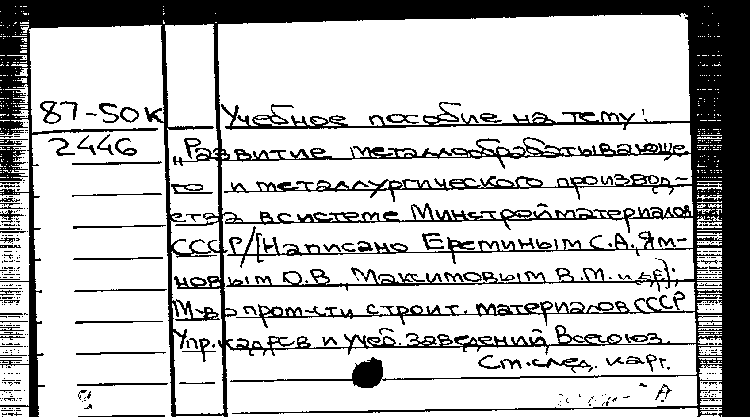 87-50к Учебное пособие на тему:
2446 „Развитие металлообрабатывающе
го и металлургического производ-
ства в системе Минстройматериалов
СССР/[Написано Ереминым С.А., Ям-
новым О.В., Максимовым В.М. и др];
М-во пром-сти строит. материалов СССР
Упр. кадров и учеб. заведений, Всесоюз.
См. след. карт.
А